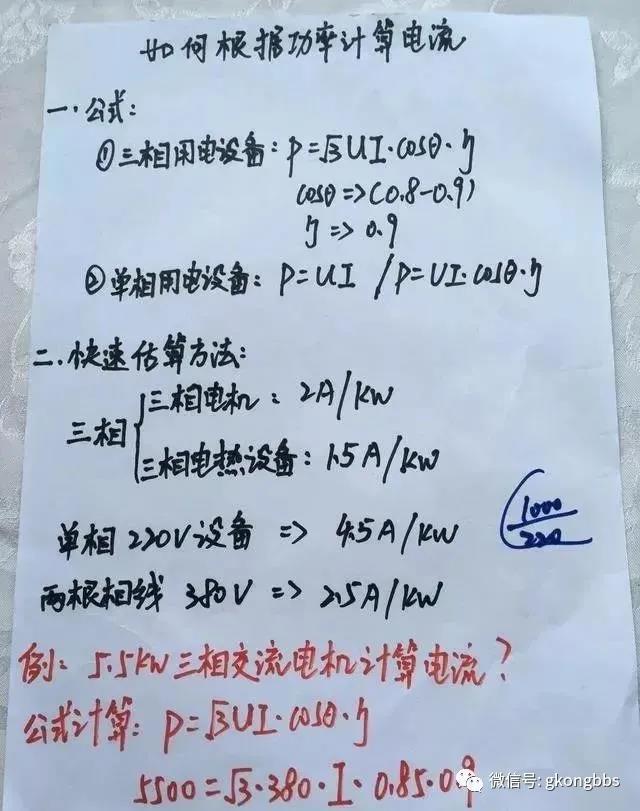 如何根据功率计算电流
一.公式:
①三相用电设备: P=√3UI·cosθ·η
cosθ=>(0.8-0.9)
η=>0.9
②单相用电设备: P=UI /P=UI·cosθ·η
二.快速估算方法:
三相
三相电机: 2A/KW
三相电热设备: 1.5A/KW
单相220V设备 => 4.5A/KW
1000
220
两根相线 380V => 2.5A/KW
例: 5.5KW三相交流电机计算电流?
公式计算: P=√3UI·cosθ·η
5500=√3·380·I·0.85·0.9
微信号: gkongbbs